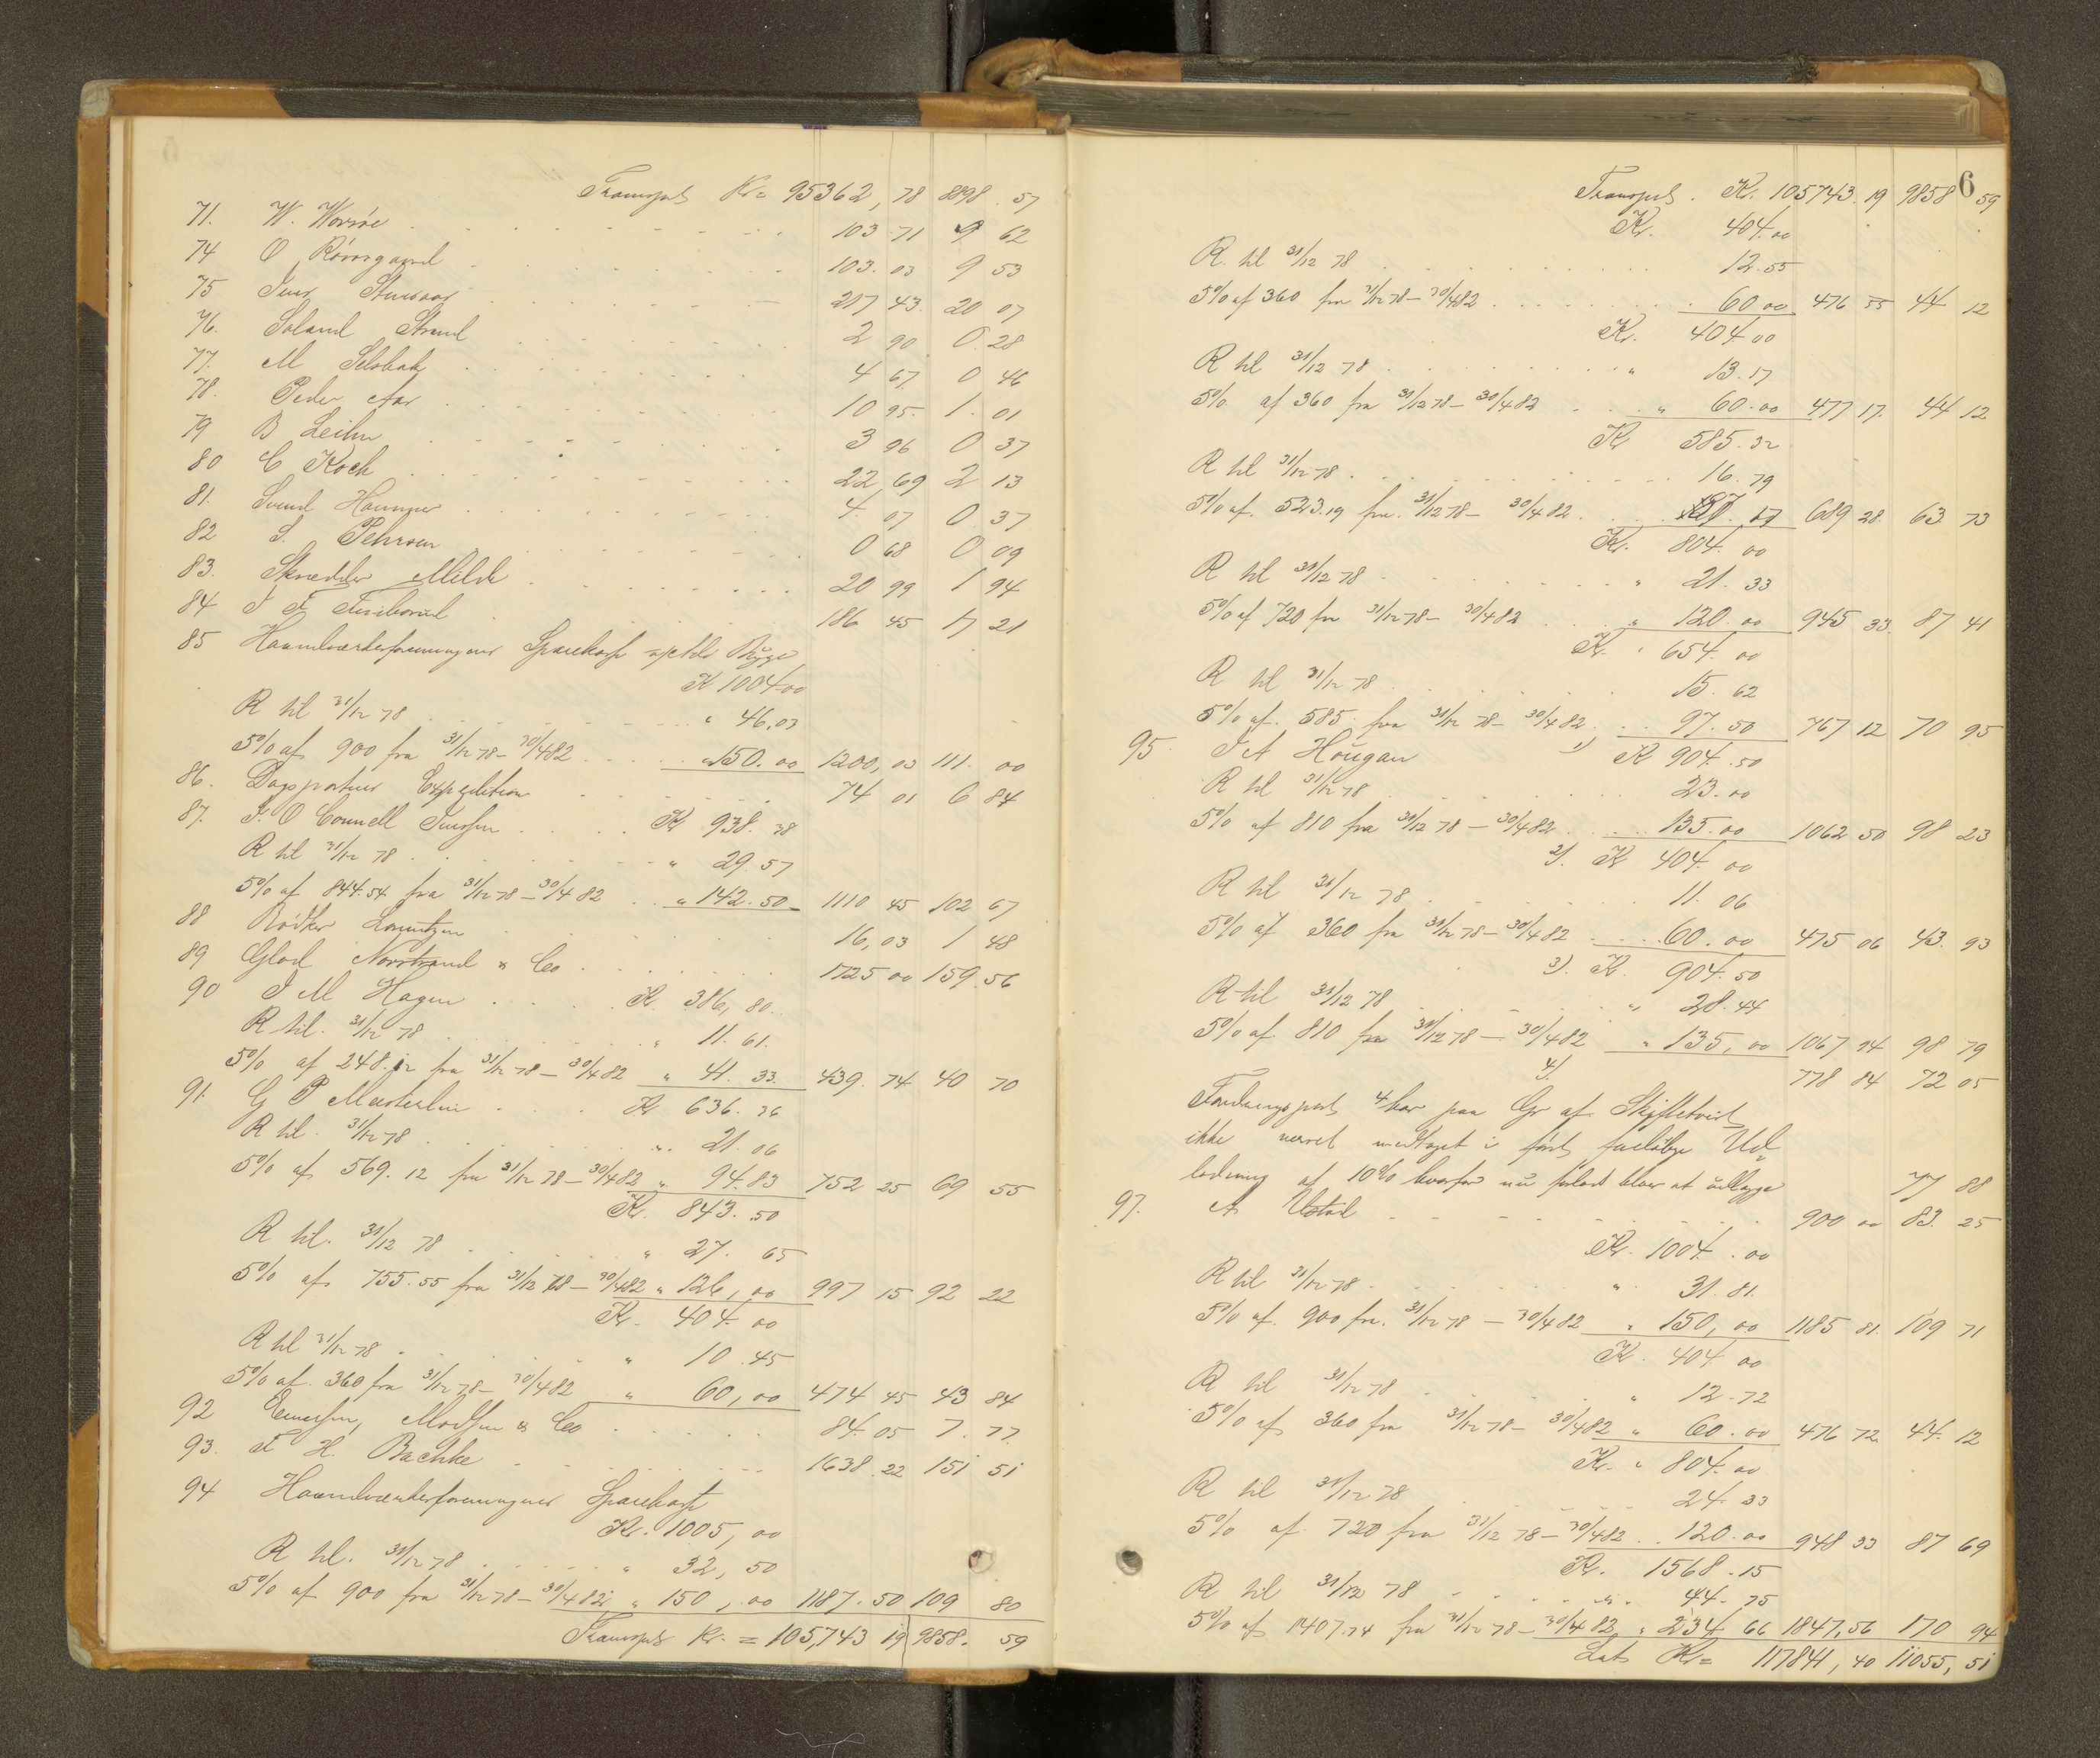 Transport Kr= 95362,78 8898.57
71. W. Worsøe 103 71 9 62
74 O Rønsgaard 103.03 9 53
75 Jens 217 43 20 07
76. Strand 2 90 0.28
77. M Selsbak 4 67. 0 46
78. Peder Aas 10 95. 1.01
79 B Leihn 3 96 0 37
80 C Koch 22 69 2 13
81. Svend 4.07 0 37
82 S. Pehrson 0 68 0 09
83. Skrædder Milde 20 99 1 94
84 186 45 17 21
85 Haandværkerforeningens Sparekasse
K 1004.00
R til 31/12 78 " 46.03
5% af 900 fra 31/12 78 – 30/4 82 " 150.00 1200,03 111.00
86. Dagsposten Expedition 74 01 6 84
87. O Connell Jenssen Kr 938.38
R til 31/12 78 " 29.57
5% af 844.54 fra 31/12 78 – 30/4 82 " 142.50 1110 45 102 67
88 Bødker Lorentzen 16,03 1 48
89 Glad Norstrand & Co 1725 00 159.56
90 J M Hagen Kr. 386,80.
R til. 31/12 78 " 11.61.
5% af 248. fra 31/12 78 – 30/4 82 " 41.33. 439.74 40 70
91. G P Kr 636.36
R til. 31/12 78 ". 21.06
5% af 569.12 fra 31/12 78 – 30/4 82 " 94.83 752 25 69 55
Kr. 843.50
R til. 31/12 78 " 27.65
5% af 755.55 fra 31/12 78 – 30/4 82 " 126,00 997 15 92 22
Kr. 404.00
R til 31/12 78 " 10.45
5% af 360 fra 31/12 78 – 30/4 82 " 60,00 474 45 43 84
92 & Co 84.05 7.77.
93. F H. Bachke 1638.22 151 51
94 Haandværkerforeningens Sparekasse
Kr. 1005,00
R til. 31/12 78 " 32,50
5% af 900 fra 31/12 78 – 30/4 82 " 150,00 1187.50 109 80
Transport Kr. = 105,743 19 9858.59
6
Transport. Kr. 105743.19 9858 59
Kr. 404.00
R. til 31/12 78 12.55
5% af 360 fra 31/12 78 – 30/4 82 60 00 476 55 44 12
Kr. 404 00
R til 31/12 78 " 13.17
5% af 360 fra 31/12 78 – 30/4 82 " 60.00 477 17. 44 12
Kr 585.32
R til 31/12 78 16.79
5% af. 523.19 fra. 31/12 78 – 30/4 82 87.17 689 28. 63.73
Kr. 804.00
R til 31/12 78 " 21.33
5% af 720 fra 31/12 78 – 30/4 82 " 120.00 945 33. 87 41
Kr. " 654.00
R til 31/12 78 15.62
5% af. 585. fra 31/12 78 – 30/4 82 97.50 767 12 70 95
95. J A Hougan 1) K 904.50
R til 31/12 78 23.00
5% af 810 fra 31/12 78 – 30/4 82 135.00 1062 50 98 23
2). K 404.00
R til 31/12 78 11.06
5% af 360 fra 31/12 78 – 30/4 82 60.00 475 06 43.93
3). K. 904.50
R til 31/12 78 " 28.44
5% af. 810 fra 31/12 78 – 30/4 82 " 135,00 1067 94 98 79
4). 778 84 72 05
Fordringspost 4 har paa Gr af Skiftetvist
ikke været medtaget i første foreløbige Ud„
lodning af 10% hvorfor nu forlods bliver at udlægge 77 88
97. A 900 00 83.25
Kr. 1004.00
R til 31/12 78 " 31.81.
5% af. 900 fra. 31/12 78 – 30/4 82 " 150,00 1185 81. 109 71
K. 404 00
R til 31/12 78 " 12.72
5% af 360 fra 31/12 78 – 30/4 82 " 60.00 476 72. 44.12
Kr. " 804.00
R til 31/12 78 24.33
5% af 720 fra 31/12 78 – 30/4 82 120.00 948 33 87 69
Kr. 1568.15
R til 31/12 78 " 44.75
5% af 1407.94 fra 31/12 78 – 30/4 82 " 234 66 1847,56 170 94
Lats Kr= 117841,40 11055,51